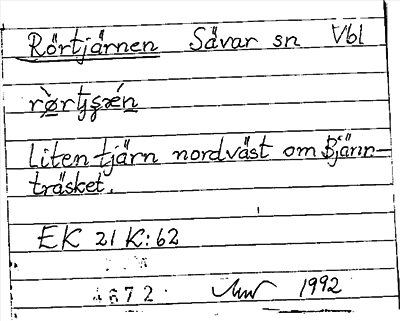 Rörtjärnen Sävar sn Vbl
rø̀rtʂǽn
Liten tjärn nordväst om Bjänn-
träsket.
EK 21 K:62
4672 1992